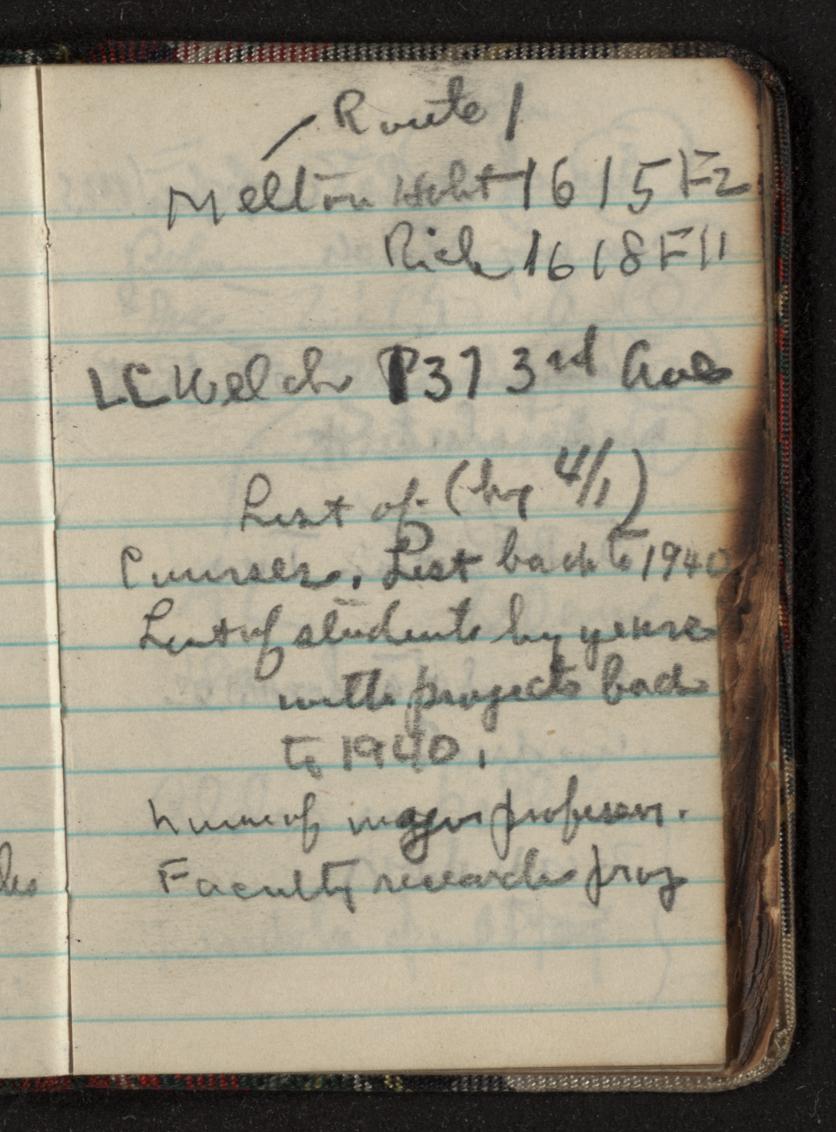 Route 1
Melton Holt 1615F2
Rich 1618F11
LC Welch 1373 3rd Ave
List of (by 4/1)
Courses. List back to 1940
List of students by years
with projects back
to 1940.
Name of major professor.
Faculty research proj